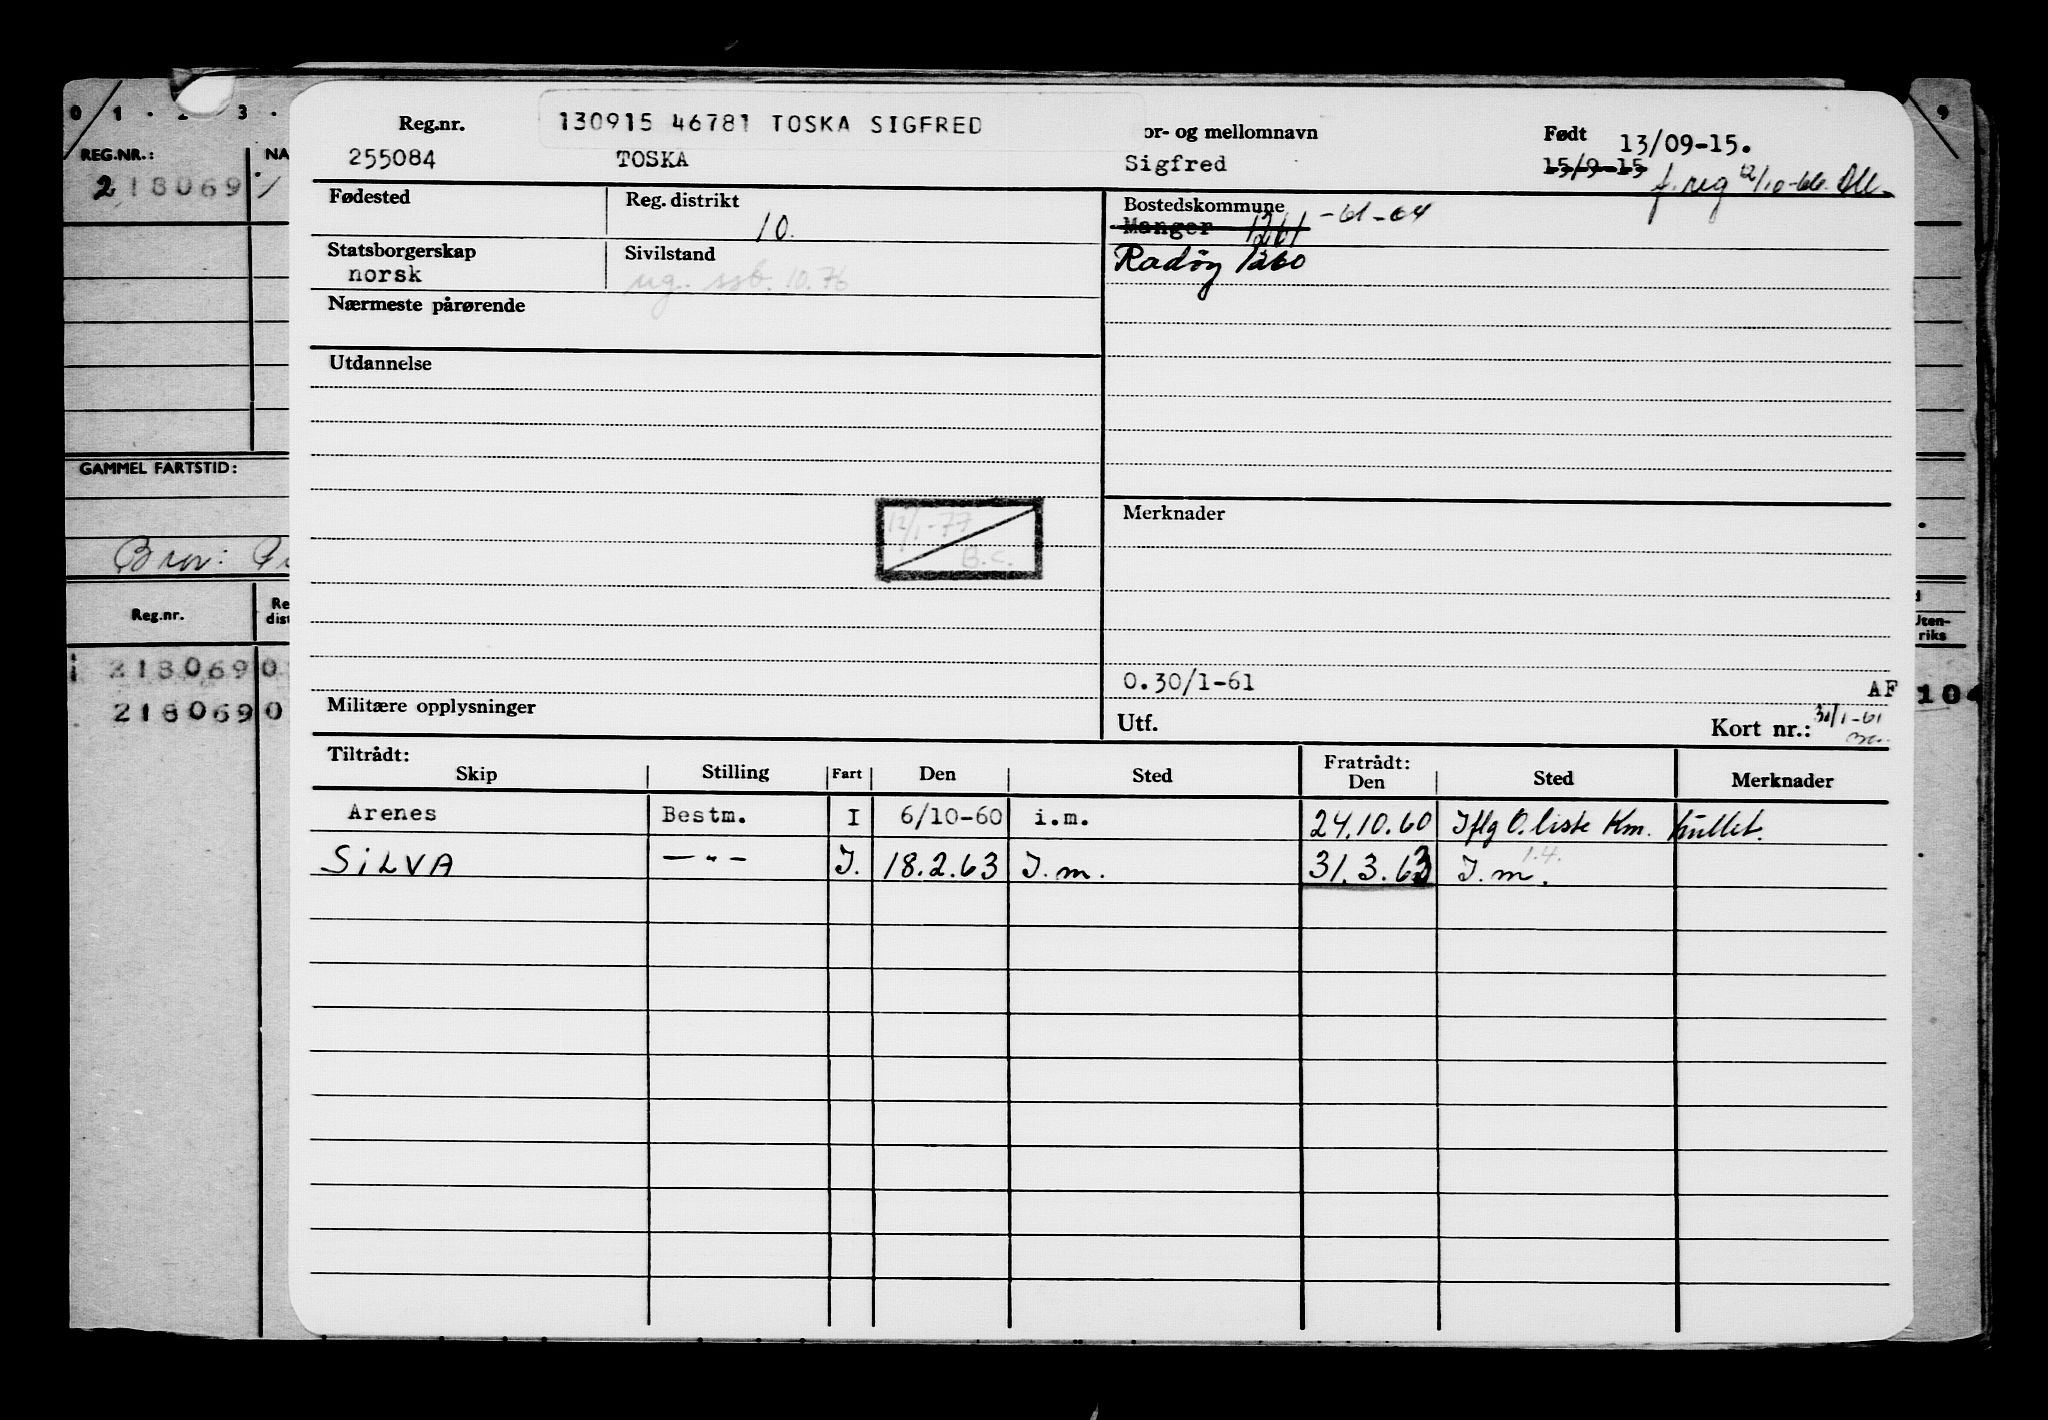 0 1 - 2 3 -
9
REG.NR.: NA
218069
GAMMEL FARTSTID:
Bror:
Reg.nr. Re
dist
218069 0
218069 0
d
Uten-
riks
104
130915 46781 TOSKA SIGFRED
Reg.nr. or- og mellomnavn Født 13/09-15.
255084 TOSKA Sigfred 15/9-15
f. reg 12/10-66.
Fødested Reg. distrikt Bostedskommune
10. Manger 1261 -61-64
Statsborgerskap Sivilstand Radøy 1260
norsk ug. ssb. 10.76
Nærmeste pårørende
Utdannelse
Merknader
12/1-77
B.C.
0.30/1-61 AF
Militære opplysninger Utf. Kort nr.: 31/1-61
Tiltrådt: Fratrådt:
Skip Stilling Fart Den Sted Den Sted Merknader
Arenes Bestm. I 6/10-60 i.m. 24.10.60 Iflg O.liste Km. hullet.
SiLVA —"— I. 18.2.63 I.m. 31.3.63 I.m. 1.4.